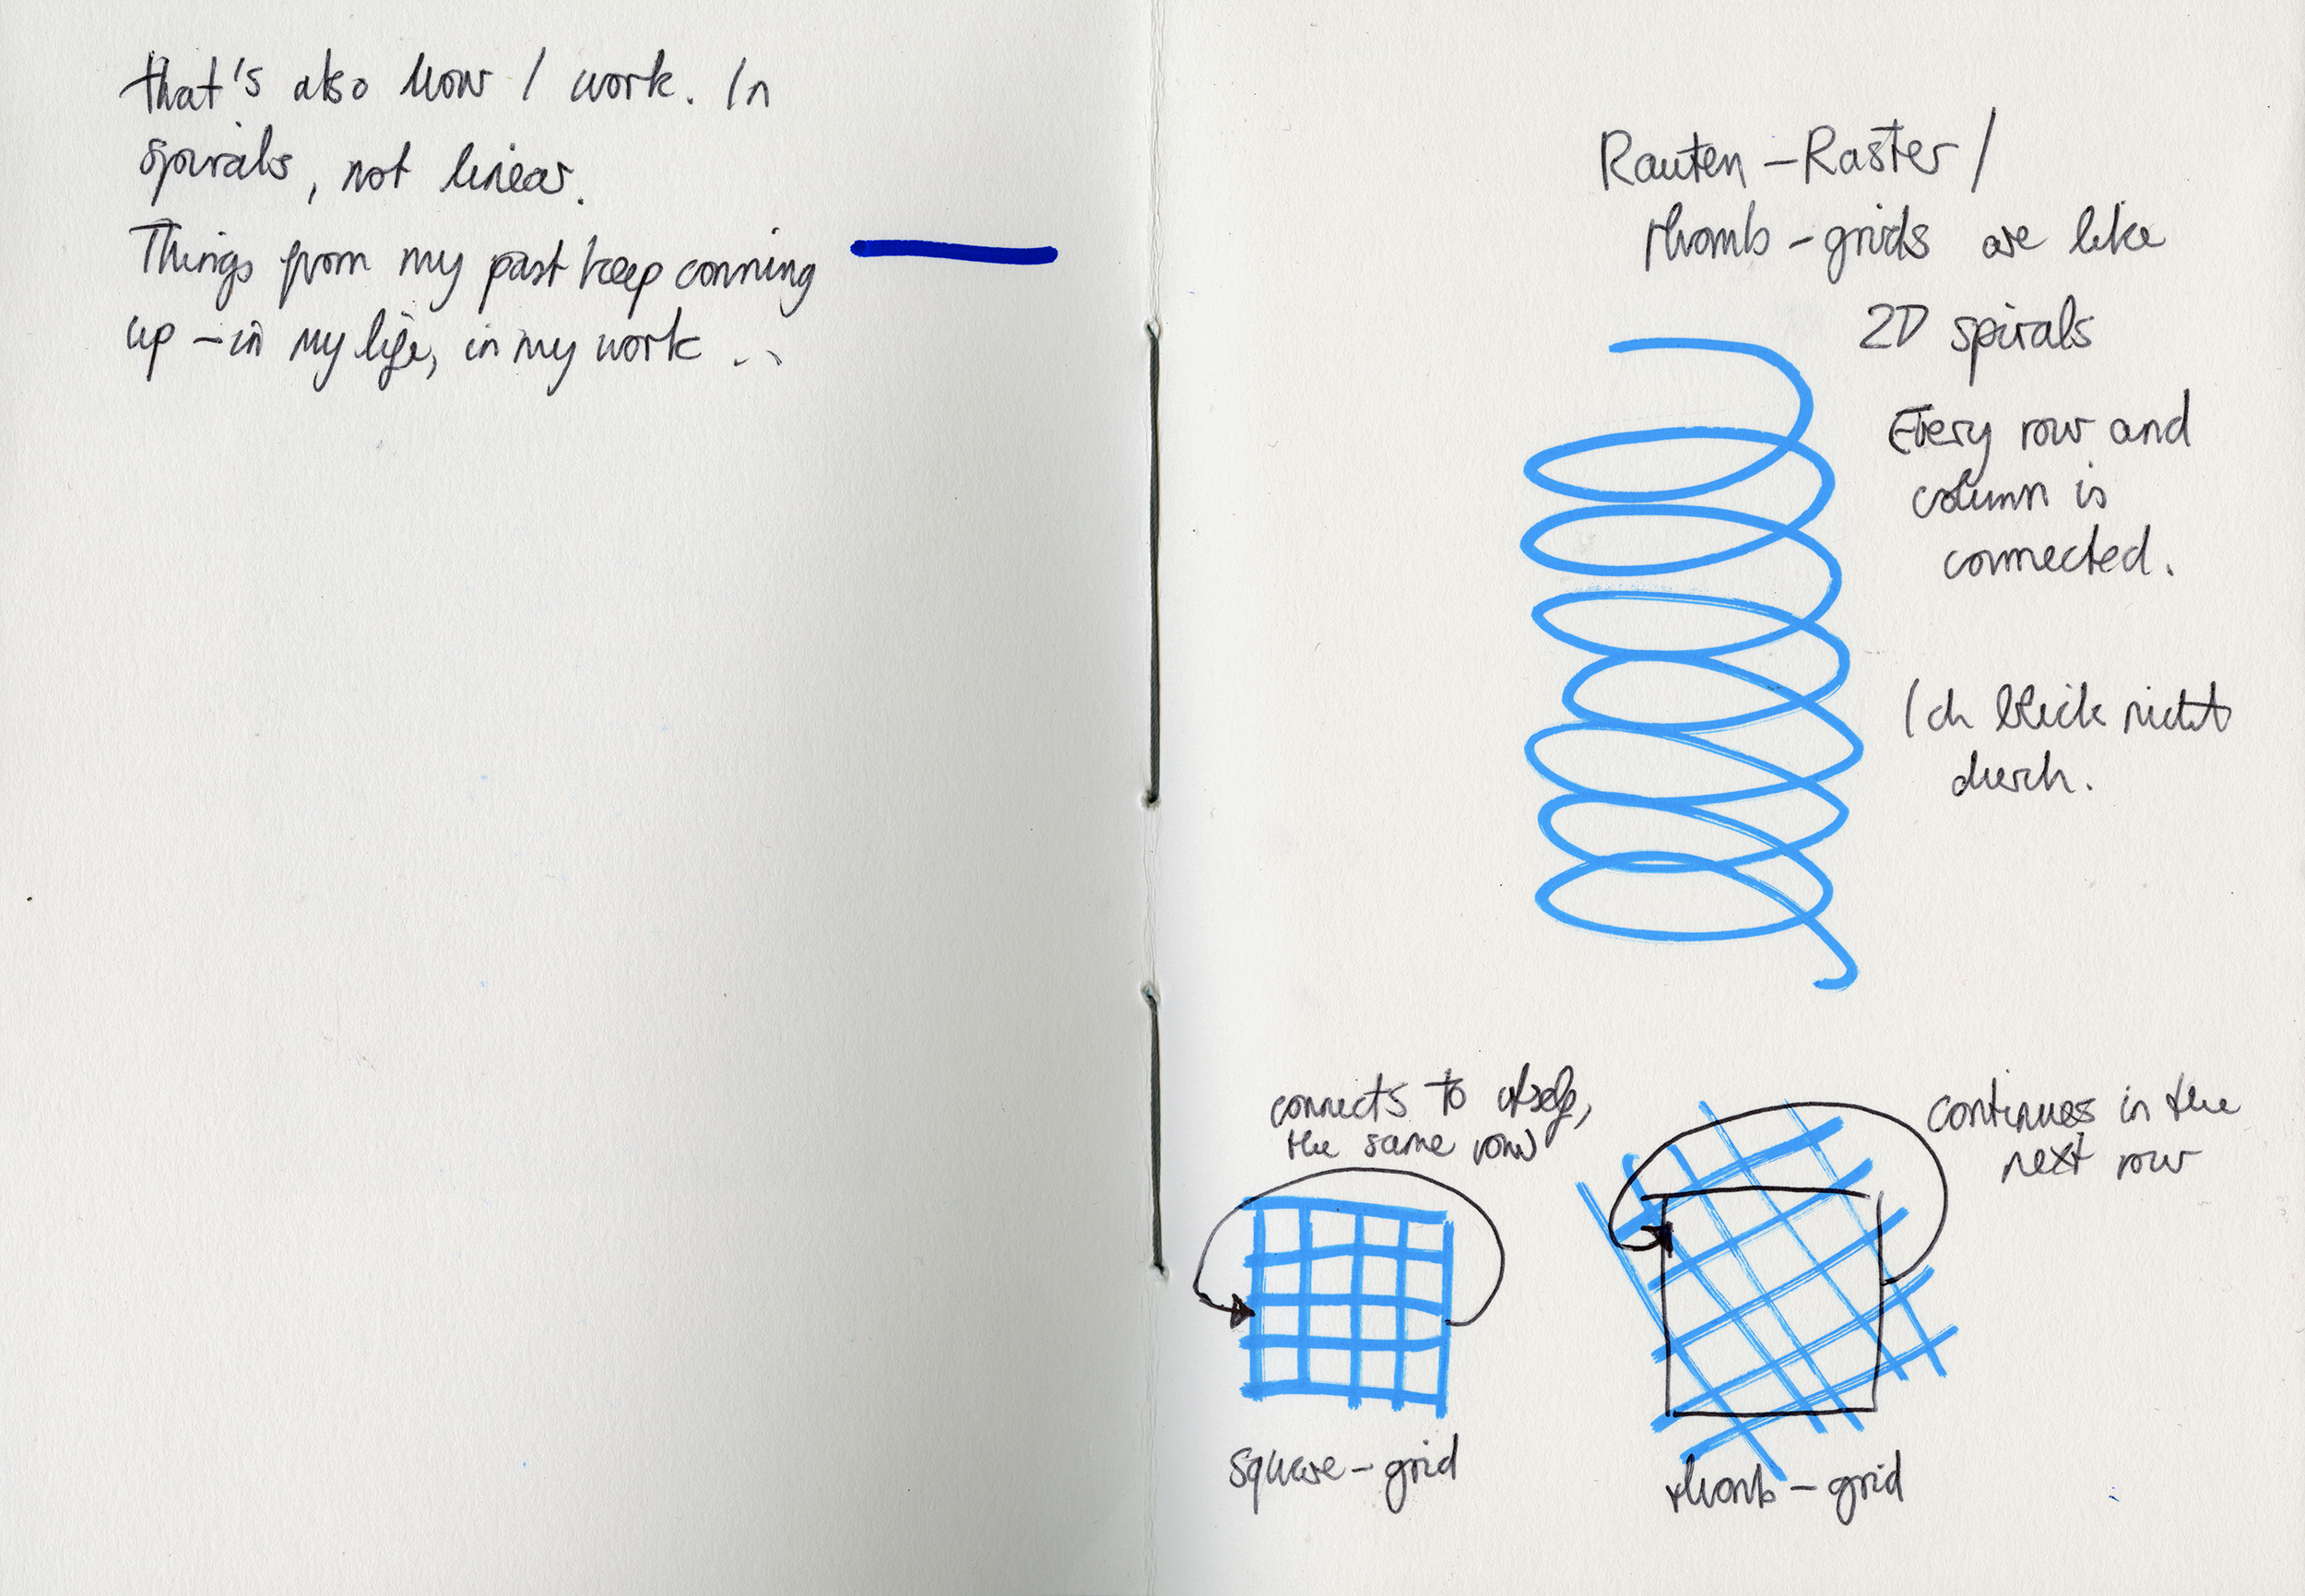 that's also how I work. In
spirals, not linear.
Things from my past keep comning
up – in my life, in my work ...
Rauten-Raster /
rhomb-grids are like
2D spirals
Every row and
column is
connected.
Ich blick nicht
durch.
connects to itself,
the same row
continues in the
next row
square-grid
rhomb-grid